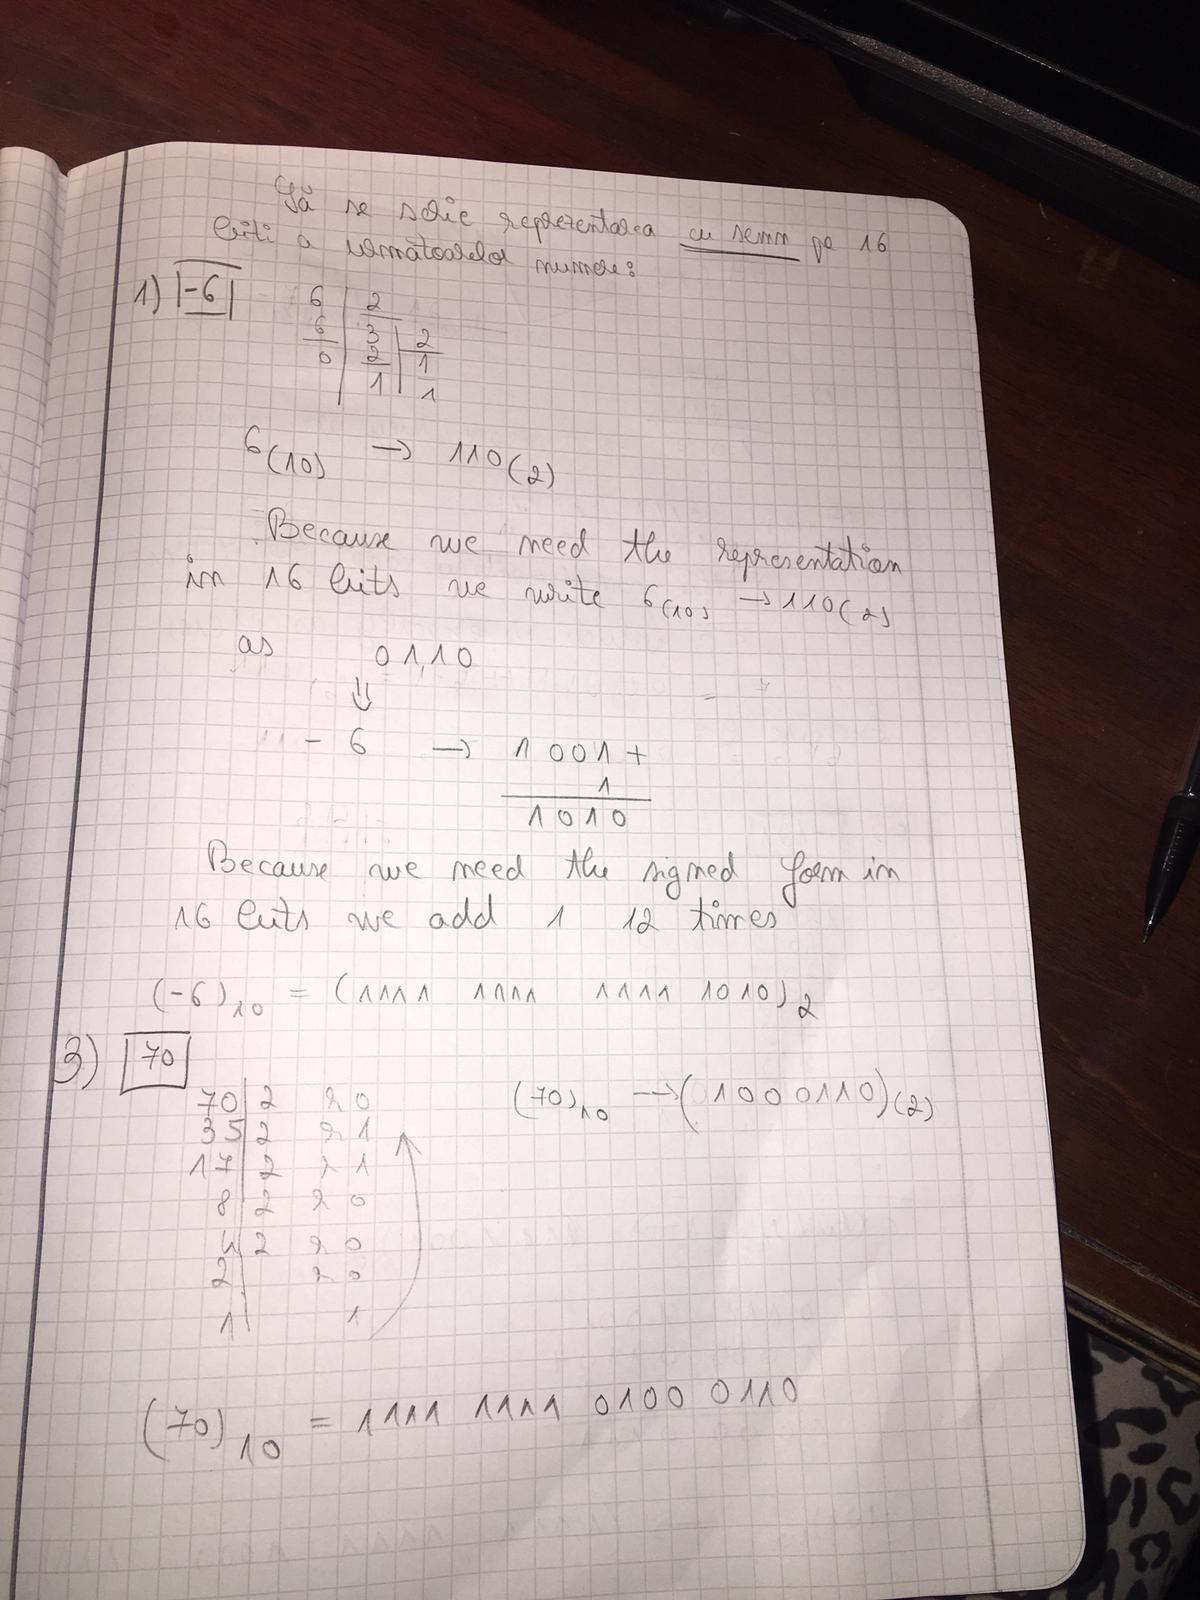 Să se scrie reprezentarea cu semn pe 16
biti a urmatoarelor numere:
1) |-6|
6 | 2
6 | 3 | 2
0 | 2 | 1
1 | 1
6(10) → 110(2)
Because we need the representation
in 16 bits we write 6(10) → 110(2)
as 0110
⇓
- 6 → 1001+
1
1010
Because we need the signed form in
16 bits we add 1 12 times
(-6)10 = (1111 1111 1111 1010)2
3) 70
70 | 2 r 0 (70)10 → (1000110)(2)
35 | 2 r 1
17 | 2 r 1
8 | 2 r 0
4 | 2 r 0
2 | r 0
1 | 1
(70)10 = 1111 1111 0100 0110